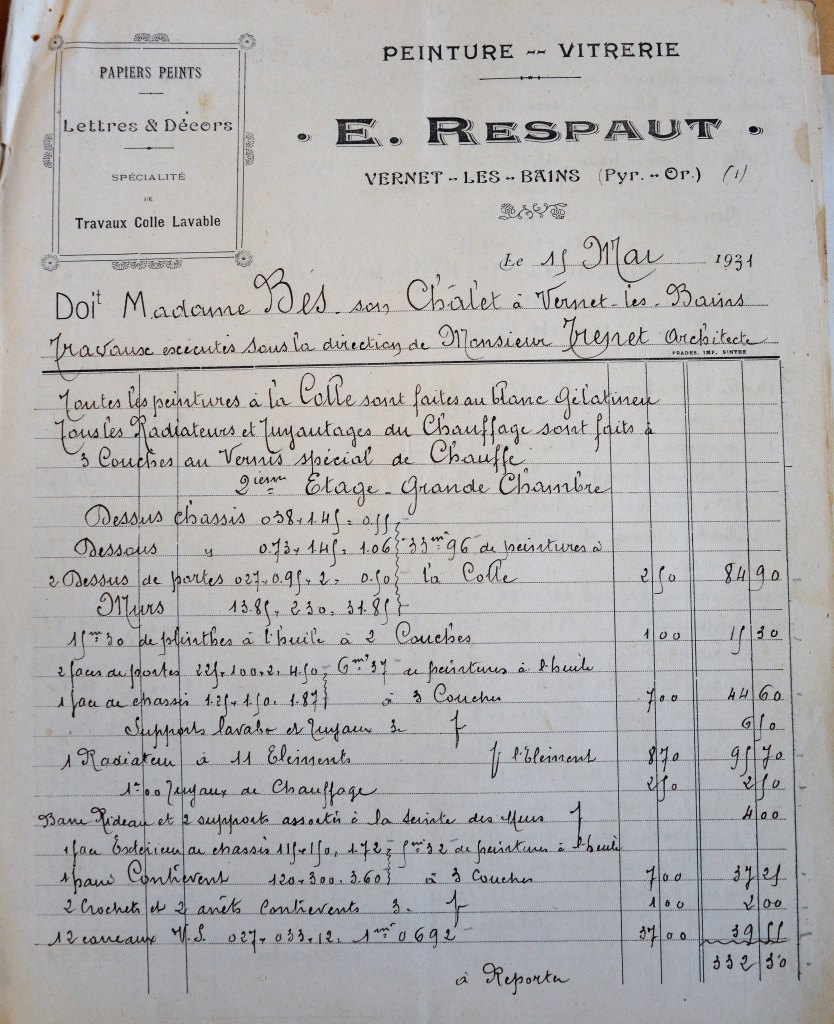 PAPIERS PEINTS
Lettres & Décors
SPÉCIALITÉ
DE
Travaux Colle Lavable
PEINTURE -- VITRERIE
• E. RESPAUT •
VERNET -- LES -- BAINS (Pyr. -- Or.) (1)
Le 15 Mai 1931
Doit Madame Bès son Châlet à Vernet-les-Bains
Travaux exécutés sous la direction de Monsieur Trenet Architecte
PRADES. IMP. SINTHE
Toutes les peintures à la Colle sont faites au blanc Gélatineu
Tous les Radiateurs et Tuyautages du Chauffage sont faits à
3 Couches au Vernis spécial de Chauffe
2ième Etage - Grande Chambre
Dessus chassis 038 x 1.45 = 0.55
Dessous " 0.73 x 1.45 = 1.06 33m²96 de peintures à
2 Dessus de portes 027 x 0.95 x 2 = 0.50 la Colle 2 50 84 90
Murs 13.85 x 230 = 31.85
15m30 de plinthes à l'huile à 2 Couches 1 00 15 30
2 faces de portes 225 x 100 x 2 = 4.50 6m²37 de peintures à l'huile
1 face de chassis 1.25 x 1.50 = 1.87 à 3 Couches 7 00 44 60
Supports lavabo et Tuyaux 3c f 6 50
1 Radiateur à 11 Elements f l'Element 8 70 95 70
1m00 Tuyaux de Chauffage 2 50 2 50
Barre Rideau et 2 supports assortis à la teinte des Murs f 4 00
1 face Extérieur de chassis 115 x 150 = 172 5m²32 de peintures à l'huile
1 paire Contrevent 120 x 300 = 3.60 à 3 Couches 7 00 37 25
2 Crochets et 2 arrêts Contrevents 3c f 1 00 2 00
12 carreaux V.S. 027 x 033 x 12 = 1m²0692 37 00 39 55
332 30
à Reporter